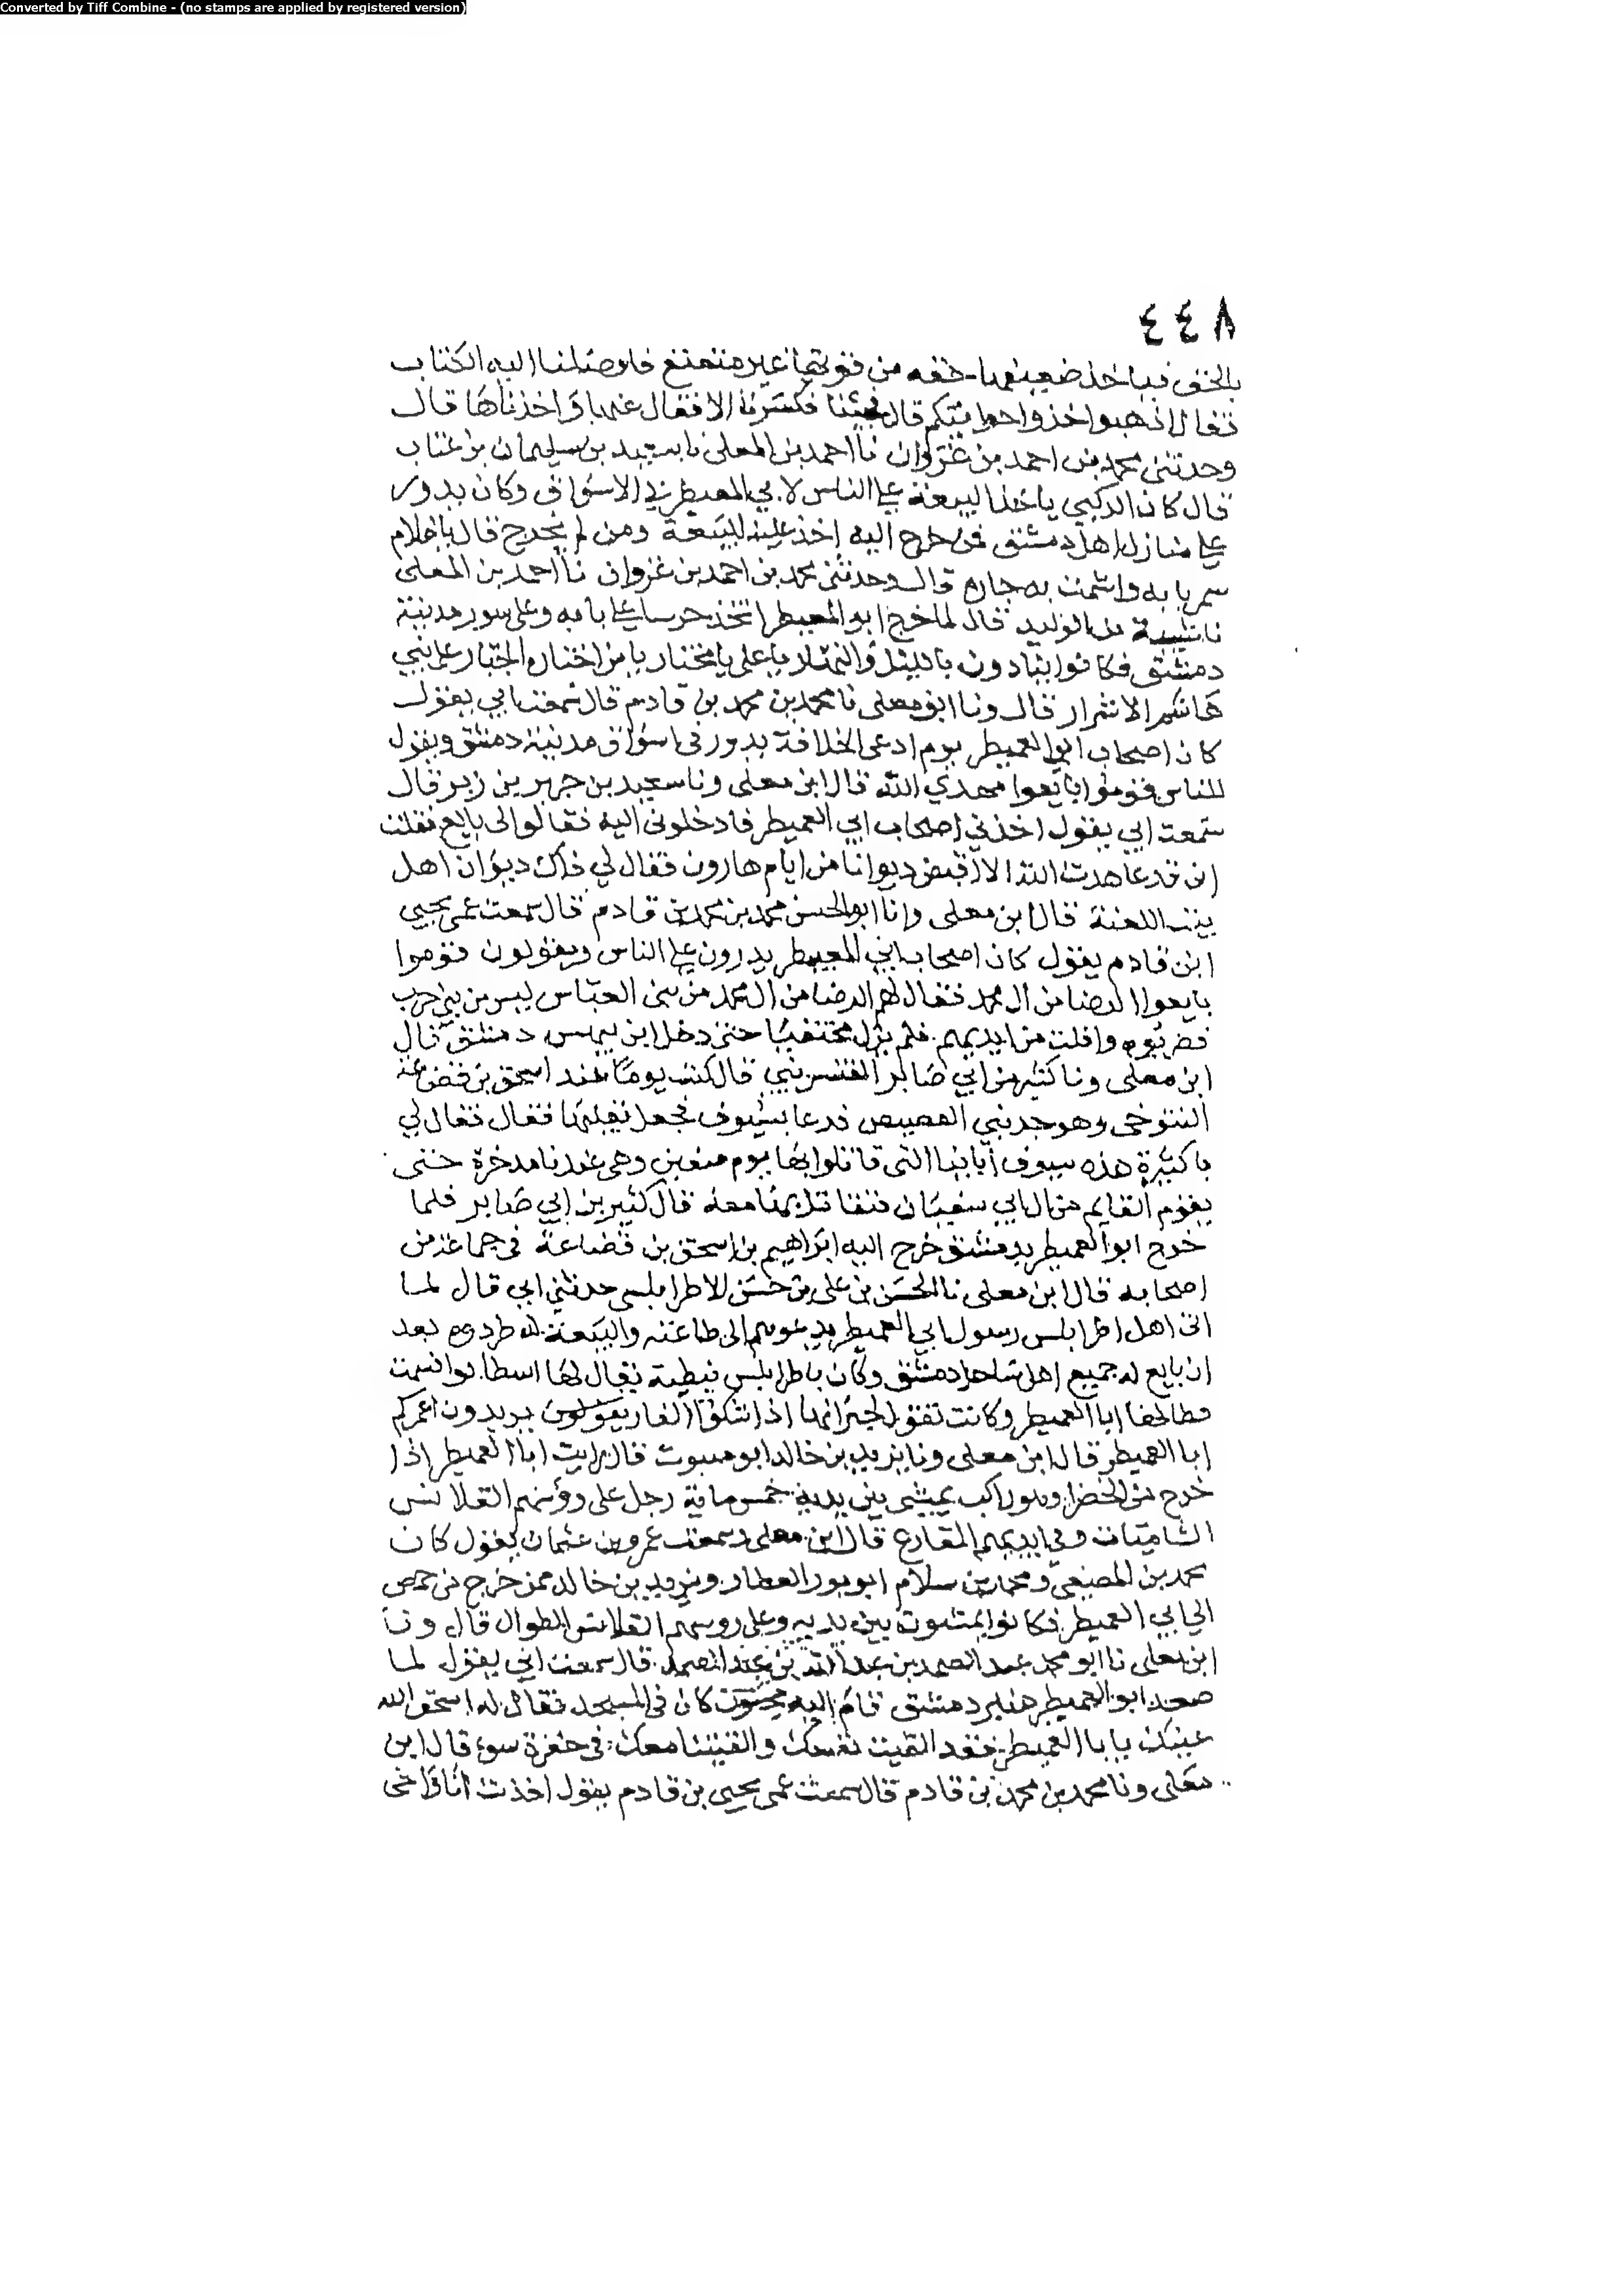 Converted by Tiff Combine - (no stamps are applied by registered version)
٤٤٨
بالحق فياخذ ضعيفها حقه من قويها غير متمتع فاوصلنا اليه الكتاب
فقال اذهبوا خذوا حوايتكم قال فجئنا فكسرنا الاقفال عنها واخذناها قال
وحدثني محمد بن احمد بن غزوان نا احمد بن المعلى نا بن سليمان بن عتاب
قال كان الركبي ياخذ البيعة على الناس لابي العميطر في الاسواق وكان يدور
على منازل اهل دمشق فمن خرج اليه اخذ عليه البيعة ومن لم يخرج قال ياغلام
سمر بابه واشمت به جاره قال وحدثني محمد بن احمد بن غزوان نا احمد بن المعلى
نا بن الوليد قال لما خرج ابو العميطر اتخذ حرسا على بابه وعلى سور مدينة
دمشق فكانوا ينادون بالليل والنهار يا علي يا مختار يا من اختاره الجبار على بني
هاشم الاشرار قال ونا ابن معلى نا محمد بن محمد بن قادم قال سمعت ابي يقول
كان اصحاب ابي العميطر يوم ادعى الخلافة يدور في اسواق مدينة دمشق ويقول
للناس قوموا بايعوا مهدي الله قال ابن معلى ونا سعيد بن جرير بن زبر قال
سمعت ابي يقول اخذني اصحاب ابي العميطر فادخلوني اليه فقالوا لي بايع فقلت
اني قد عاهدت الله الا اقبض ديوانا من ايام هارون فقال لي ذاك ديوان اهل
بيت اللعنة قال ابن معلى وانا ابو الحسن محمد بن محمد بن قادم قال سمعت عمي يحيى
ابن قادم يقول كان اصحاب ابي العميطر يدورون على الناس ويقولون قوموا
بايعوا الرضا من ال محمد فقال لهم الرضا من ال محمد من بني العباس ليس من بني حرب
فضربوه وافلت من ايديهم فلم يزل مختفيا حتى دخل ابن بيهس دمشق قال
ابن معلى ونا كثير بن ابي صابر القنسريني قال كنت يوما عند اسحق بن قضاعة
التنوخي وهو جد بني القصيص فدعا بسيوف فجعل يقلبها فقال فقال لي
يا كثير هذه سيوف أبائنا التي قاتلوا بها يوم صفين وهي عندنا مدخرة حتى
يقوم القايم من ال ابي سفيان فنقاتل بها معه قال كثير بن ابي صابر فلما
خرج ابو العميطر بدمشق خرج اليه ابراهيم بن اسحق بن قضاعة في جماعة من
اصحابه قال ابن معلى نا الحسن بن علي بن حسن الاطرابلسي حدثني ابي قال لما
اتى اهل اطرابلس رسول ابي العميطر يدعوهم الى طاعته والبيعة له طردوه بعد
ان بايع له جميع اهل ساحل دمشق وكان باطرابلس نبطية يقال لها اسطا
ابا العميطر وكانت تقول لجيرانها اذا الفار يقولون يريدون اعمركم
ابا العميطر قال ابن معلى ونا يزيد بن خالد ابو قال رايت ابا العميطر اذا
خرج من الخضرا وهو راكب يمشي بين يديه خمس ماية رجل على رؤسهم القلانس
الشاميات وفي ايديهم المقارع قال ابن معلى وسمعت عمرو بن عثمان يقول كان
محمد بن المصفى ومحمد بن سلام العطار ويزيد بن خالد ممن خرج من حمص
الى ابي العميطر فكانوا يمشون بين يديه وعلى روسهم القلانس الطوال قال ونا
ابن معلى نا ابو محمد عبد الصمد بن عبد الله بن عبد الصمد قال سمعت ابي يقول لما
صعد ابو العميطر منبر دمشق قام اليه مجنون كان في المسجد فقال له اسخن الله
عينك يا با العميطر فقد القيت نفسك والقيتنا معك في حفرة سوء قال ابن
معلى ونا محمد بن محمد بن قادم قال سمعت عمي يحيى بن قادم يقول اخذت انا واخي